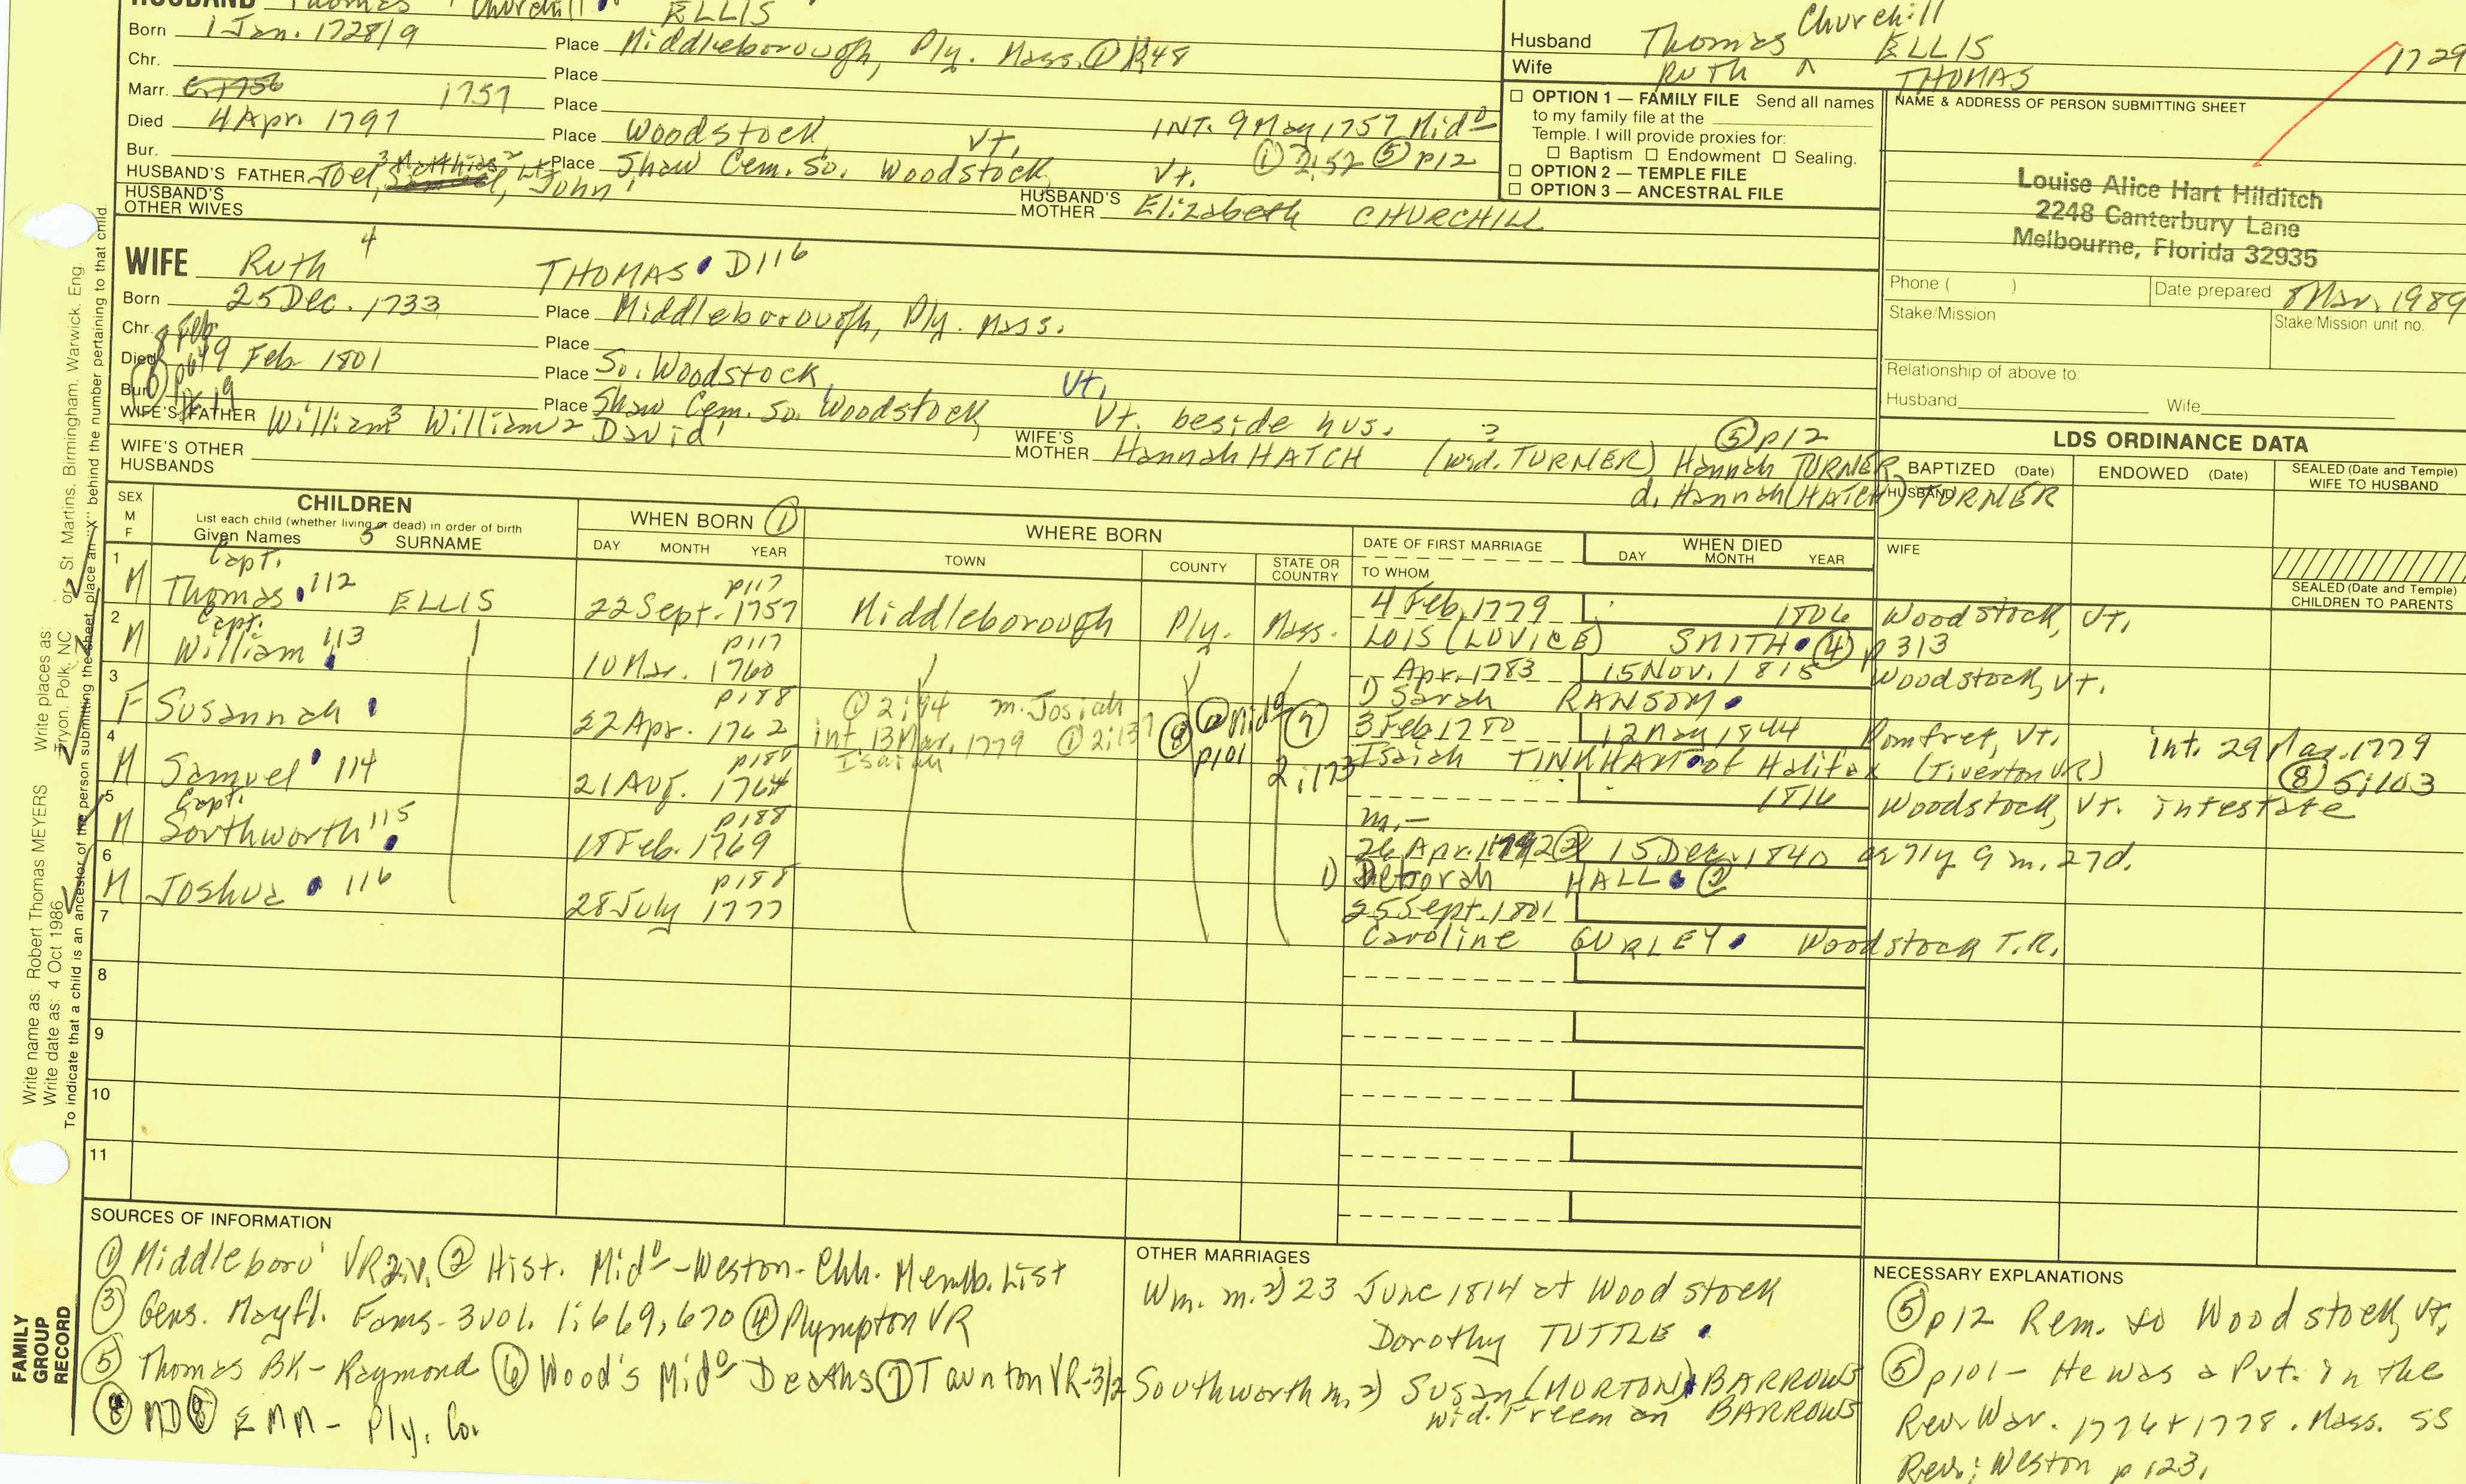 HUSBAND Thomas Churchill ELLIS
Born 1 Jan. 1728/9 Place Middleborough, Ply. Mass. ① 1:48
Chr. Place
Marr. C. 1756 1757 Place INT. 9 May 1757 Mido
Died 4 Apr. 1797 Place Woodstock, Vt. ① 2:52 ⑤ p12
Bur. Place Shaw Cem. So. Woodstock, Vt.
HUSBAND'S FATHER Joel,3 Matthias2 Lt. John1 HUSBAND'S MOTHER Elizabeth CHURCHILL
HUSBAND'S OTHER WIVES
Husband Thomas Churchill ELLIS
Wife Ruth THOMAS
1729
☐ OPTION 1 — FAMILY FILE Send all names
to my family file at the
Temple. I will provide proxies for:
☐ Baptism ☐ Endowment ☐ Sealing.
☐ OPTION 2 — TEMPLE FILE
☐ OPTION 3 — ANCESTRAL FILE
NAME & ADDRESS OF PERSON SUBMITTING SHEET
Louise Alice Hart Hilditch
2248 Canterbury Lane
Melbourne, Florida 32935
Phone ( ) Date prepared 8 Mar. 1989
Stake/Mission Stake/Mission unit no.
Relationship of above to:
Husband Wife
WIFE Ruth 4 THOMAS D116
Born 25 Dec. 1733 Place Middleborough, Ply. Mass.
Chr. 8 Feb. Place
Died 19 Feb 1801 Place So. Woodstock, Vt.
Bur. Place Shaw Cem. So. Woodstock, Vt. beside hus.
WIFE'S FATHER William3 William2 David1 WIFE'S MOTHER Hannah HATCH (wid. TURNER) ? Hannah TURNER ⑤ p12
d. Hannah (HATCH) TURNER
WIFE'S OTHER HUSBANDS
LDS ORDINANCE DATA
BAPTIZED (Date) ENDOWED (Date) SEALED (Date and Temple) WIFE TO HUSBAND
HUSBAND
WIFE
SEALED (Date and Temple) CHILDREN TO PARENTS
SEX M F
CHILDREN
List each child (whether living or dead) in order of birth
Given Names 5 SURNAME
WHEN BORN ①
DAY MONTH YEAR
WHERE BORN
TOWN COUNTY STATE OR COUNTRY
DATE OF FIRST MARRIAGE
TO WHOM
WHEN DIED
DAY MONTH YEAR
1 M Capt. Thomas 112 ELLIS p117 22 Sept. 1757 Middleborough Ply. Mass. 4 Feb. 1779 1806 Woodstock, Vt.
LOIS (LUVICE) SMITH ④ p313
2 M Capt. William 113 p117 10 Mar. 1760 Apr. 1783 15 Nov. 1815 Woodstock, Vt.
1) Sarah RANSOM
3 F Susannah p188 22 Apr. 1762 ① 2:94 m. Josiah 3 Feb 1780 12 May 1844 Pomfret, Vt. int. 29 Mar. 1779
int. 13 Mar. 1779 ① 2:137 Isaiah ⑧ p101 ⑦ 2:173 Isaiah TINKHAM of Halifax (Tiverton VR) ⑧ 5:103
4 M Samuel 114 p188 21 Aug. 1764 1816 Woodstock, Vt. intestate
m. —
5 M Capt. Southworth 115 p188 18 Feb. 1769 26 Apr. 1792 ② 15 Dec. 1840 ae 71y 9m. 27d.
1) Deborah HALL ②
6 M Joshua 116 p188 28 July 1777 25 Sept. 1801
Caroline GURLEY Woodstock T.R.
7
8
9
10
11
SOURCES OF INFORMATION
① Middleboro' VR 2 v. ② Hist. Mido - Weston - Chh. Memb. List
③ Gens. Mayfl. Fams - 3 vol. 1:669, 670 ④ Plympton VR
⑤ Thomas BK - Raymond ⑥ Wood's Mido Deaths ⑦ Taunton VR - 3/2
⑧ MD ⑧ EMM - Ply. Co.
OTHER MARRIAGES
Wm. m. 2) 23 June 1814 at Woodstock
Dorothy TUTTLE
Southworth m. 2) Susan (MORTON) BARROWS
wid. Freeman BARROWS
NECESSARY EXPLANATIONS
⑤ p12 Rem. to Woodstock, Vt.
⑤ p101 - He was a Pvt. in the
Rev. War. 1776 + 1778. Mass. SS
Rev.; Weston p 123.
FAMILY GROUP RECORD
Write name as: Robert Thomas MEYERS Write places as: Tryon, Polk, NC or St. Martins, Birmingham, Warwick, Eng.
Write date as: 4 Oct 1986
To indicate that a child is an ancestor of the person submitting the sheet, place an "X" behind the number pertaining to that child.